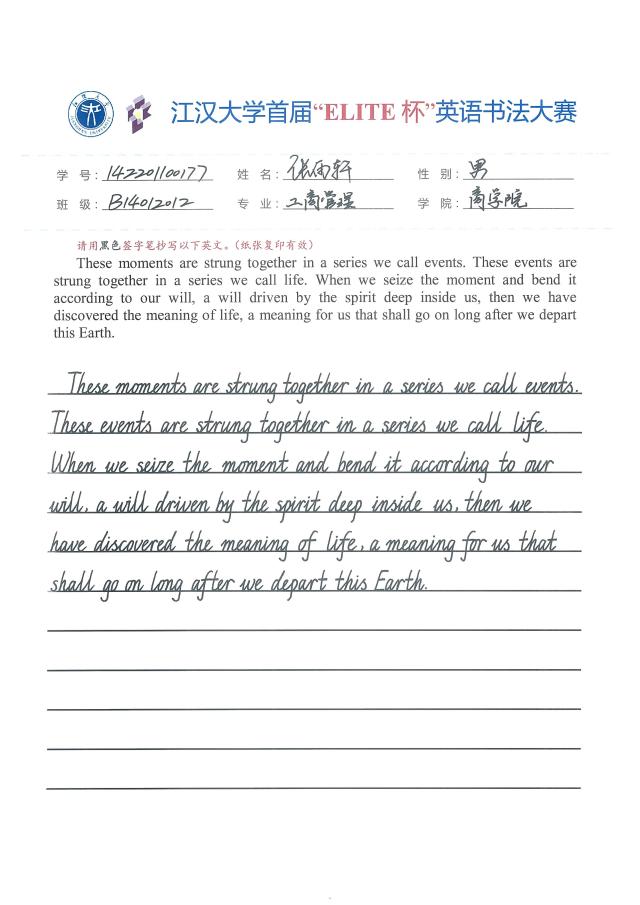 江汉大学首届“ELITE 杯”英语书法大赛
学 号：142201100177 姓 名：张雨轩 性 别：男
班 级：B14012012 专 业：工商管理 学 院：商学院
请用黑色签字笔抄写以下英文。（纸张复印有效）
These moments are strung together in a series we call events. These events are
strung together in a series we call life. When we seize the moment and bend it
according to our will, a will driven by the spirit deep inside us, then we have
discovered the meaning of life, a meaning for us that shall go on long after we depart
this Earth.
These moments are strung together in a series we call events.
These events are strung together in a series we call life.
When we seize the moment and bend it according to our
will, a will driven by the spirit deep inside us, then we
have discovered the meaning of life, a meaning for us that
shall go on long after we depart this Earth.